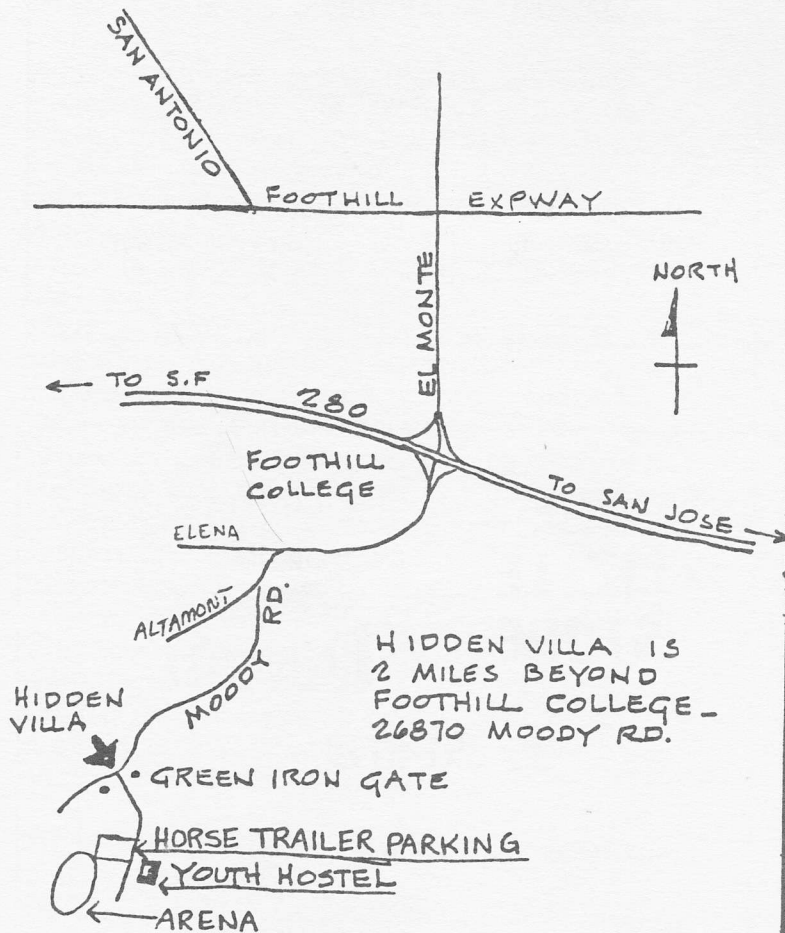 SAN ANTONIO
FOOTHILL EXPWAY
EL MONTE
NORTH
TO S.F
280
FOOTHILL
COLLEGE
TO SAN JOSE
ELENA
ALTAMONT
MOODY RD.
HIDDEN VILLA IS
2 MILES BEYOND
FOOTHILL COLLEGE_
26870 MOODY RD.
HIDDEN
VILLA
GREEN IRON GATE
HORSE TRAILER PARKING
YOUTH HOSTEL
ARENA